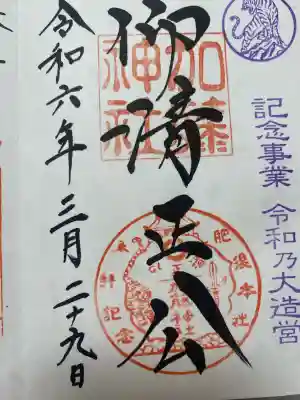 記念事業 令和乃大造営
加藤神社
仰清正公
令和六年三月二十九日